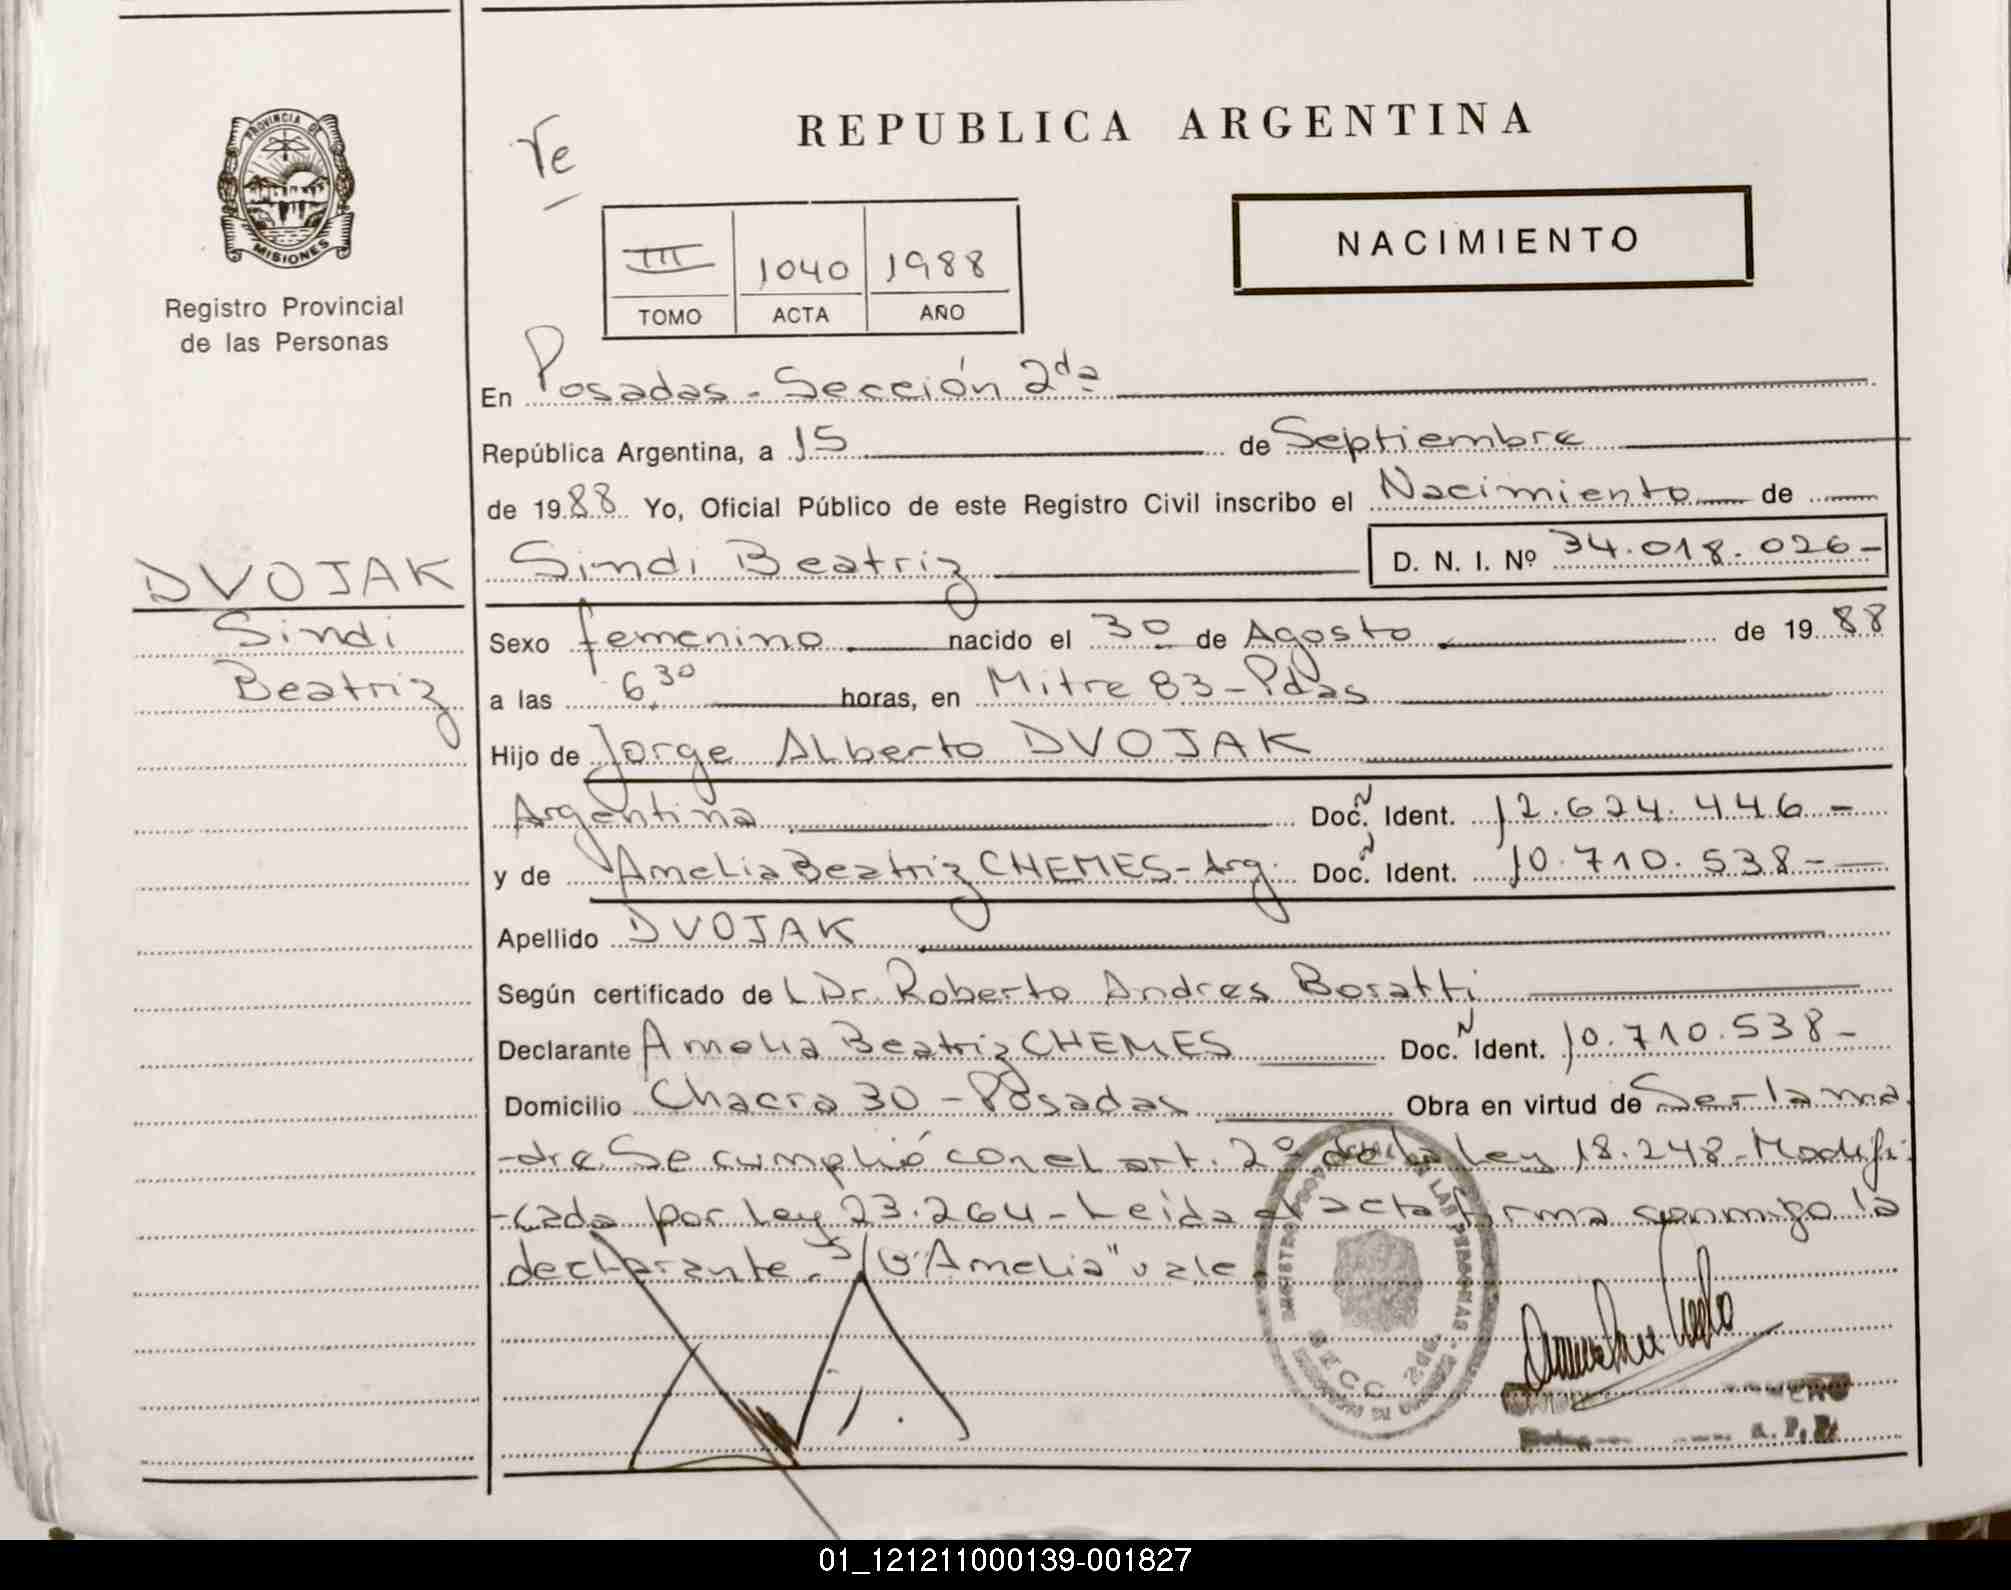 REPUBLICA ARGENTINA
PROVINCIA DE
MISIONES
Registro Provincial
de las Personas
Te
NACIMIENTO
III 1040 1988
TOMO ACTA AÑO
En Posadas - Sección 2da
República Argentina, a 15 de Septiembre
de 1988 Yo, Oficial Público de este Registro Civil inscribo el Nacimiento de
Sindi Beatriz D. N. I. Nº 34.018.026-
DVOJAK
Sindi
Beatriz
Sexo femenino nacido el 30 de Agosto de 1988
a las 6,30 horas, en Mitre 83 - Pdas
Hijo de Jorge Alberto DVOJAK
Argentina Doc. N Ident. 12.624.446-
y de Amelia Beatriz CHEMES - Arg. Doc. N Ident. 10.710.538-
Apellido DVOJAK
Según certificado de L Dr. Roberto Andres Boratti
Declarante Amelia Beatriz CHEMES Doc. N Ident. 10.710.538-
Domicilio Chacra 30 - Posadas Obra en virtud de Ser la ma
-dre. Se cumplió con el art. 2º de la Ley 18.248 - Modifi
-cada por Ley 23.264 - Leida el acta firma conmigo la
declarante. S/B "Amelia" vale
SECC 2da
A. P. P.
01_121211000139-001827